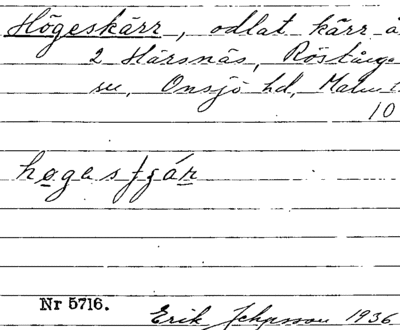 Högeskärr, odlat kärr å
2 Härsnäs, Röstånga
sn, Onsjö hd, Malm
10
høgasʃʒár
Nr 5716.
Erik 1936